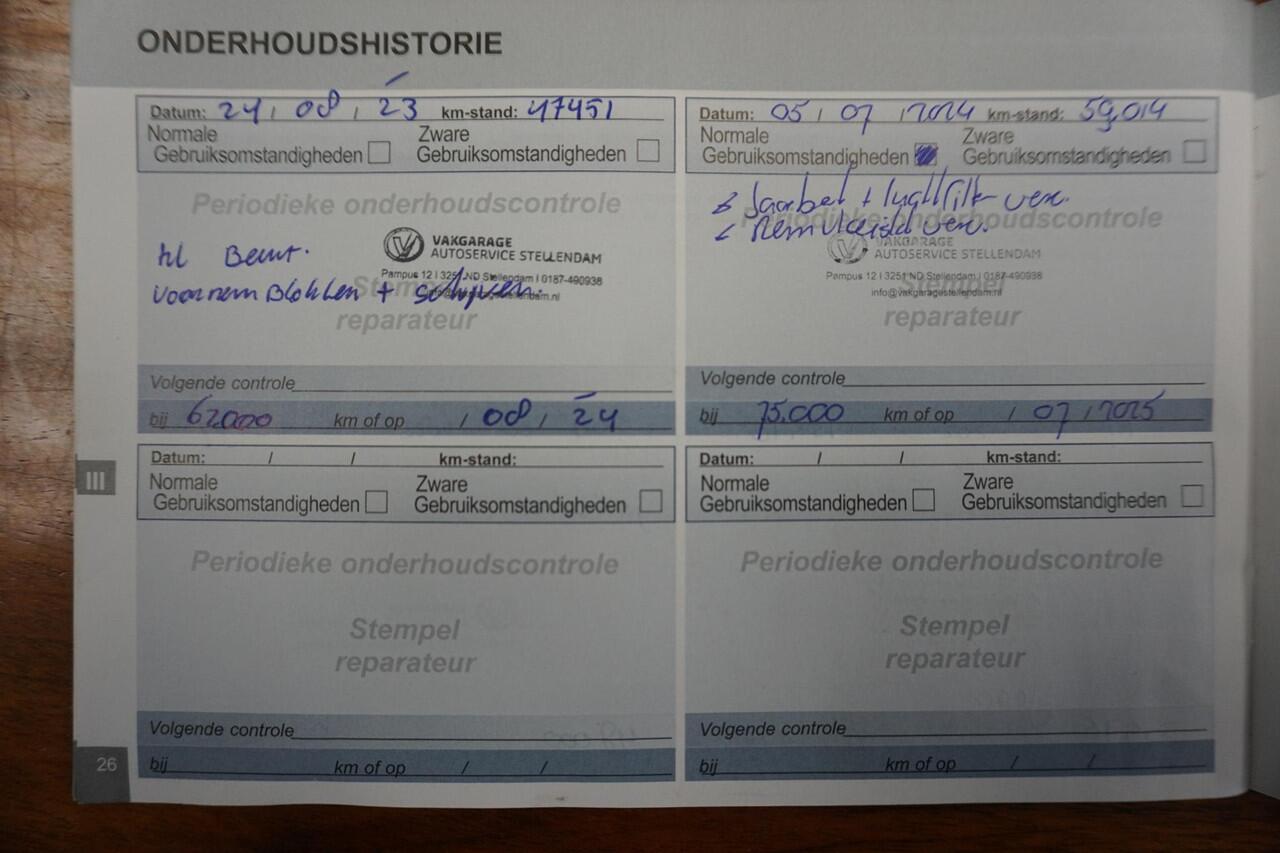 ONDERHOUDSHISTORIE
Datum: 24 / 08 / 23 km-stand: 47451
Normale Gebruiksomstandigheden
Zware Gebruiksomstandigheden
Periodieke onderhoudscontrole
kl Beurt.
VAKGARAGE
AUTOSERVICE STELLENDAM
Pampus 12 | 3251 ND Stellendam | 0187-490938
info@vakgaragestellendam.nl
voorremblokken + schijven.
Stempel
reparateur
Volgende controle
bij 62000 km of op / 08 / 24
Datum: 05 / 07 / 2024 km-stand: 59.014
Normale Gebruiksomstandigheden
Zware Gebruiksomstandigheden
+ luchtfilter ver.
Remvloeistof ver.
Periodieke onderhoudscontrole
VAKGARAGE
AUTOSERVICE STELLENDAM
Pampus 12 | 3251 ND Stellendam | 0187-490938
info@vakgaragestellendam.nl
Stempel
reparateur
Volgende controle
bij 75.000 km of op / 07 / 2025
III
Datum: / / km-stand:
Normale Gebruiksomstandigheden
Zware Gebruiksomstandigheden
Periodieke onderhoudscontrole
Stempel
reparateur
Volgende controle
bij km of op / /
Datum: / / km-stand:
Normale Gebruiksomstandigheden
Zware Gebruiksomstandigheden
Periodieke onderhoudscontrole
Stempel
reparateur
Volgende controle
bij km of op / /
26